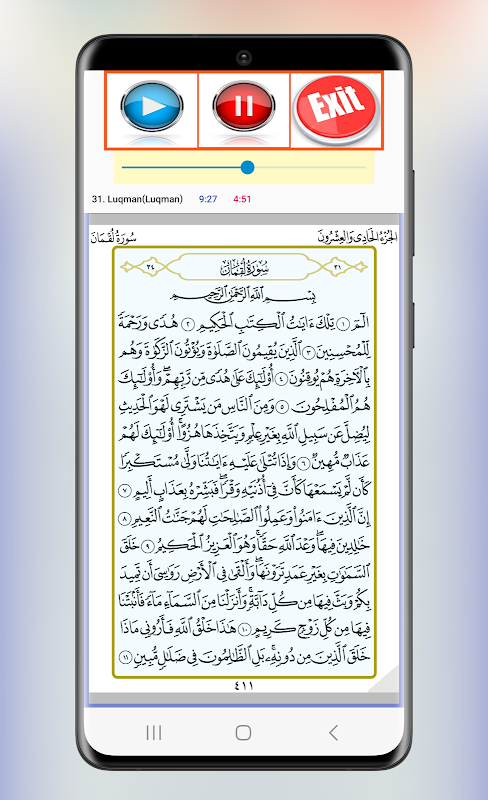 Exit
31. Luqman(Luqman) 9:27 4:51
الجزء الحادي والعشرون سورة لقمان
٣١ سورة لقمان ٣٤
بِسْمِ ٱللَّهِ ٱلرَّحْمَٰنِ ٱلرَّحِيمِ
الٓمٓ ١ تِلْكَ ءَايَٰتُ ٱلْكِتَٰبِ ٱلْحَكِيمِ ٢ هُدًى وَرَحْمَةً
لِّلْمُحْسِنِينَ ٣ ٱلَّذِينَ يُقِيمُونَ ٱلصَّلَوٰةَ وَيُؤْتُونَ ٱلزَّكَوٰةَ وَهُم
بِٱلْءَاخِرَةِ هُمْ يُوقِنُونَ ٤ أُو۟لَٰٓئِكَ عَلَىٰ هُدًى مِّن رَّبِّهِمْ ۖ وَأُو۟لَٰٓئِكَ
هُمُ ٱلْمُفْلِحُونَ ٥ وَمِنَ ٱلنَّاسِ مَن يَشْتَرِى لَهْوَ ٱلْحَدِيثِ
لِيُضِلَّ عَن سَبِيلِ ٱللَّهِ بِغَيْرِ عِلْمٍ وَيَتَّخِذَهَا هُزُوًا ۚ أُو۟لَٰٓئِكَ لَهُمْ
عَذَابٌ مُّهِينٌ ٦ وَإِذَا تُتْلَىٰ عَلَيْهِ ءَايَٰتُنَا وَلَّىٰ مُسْتَكْبِرًا
كَأَن لَّمْ يَسْمَعْهَا كَأَنَّ فِىٓ أُذُنَيْهِ وَقْرًا ۖ فَبَشِّرْهُ بِعَذَابٍ أَلِيمٍ ٧
إِنَّ ٱلَّذِينَ ءَامَنُوا۟ وَعَمِلُوا۟ ٱلصَّٰلِحَٰتِ لَهُمْ جَنَّٰتُ ٱلنَّعِيمِ ٨
خَٰلِدِينَ فِيهَا ۖ وَعْدَ ٱللَّهِ حَقًّا ۚ وَهُوَ ٱلْعَزِيزُ ٱلْحَكِيمُ ٩ خَلَقَ
ٱلسَّمَٰوَٰتِ بِغَيْرِ عَمَدٍ تَرَوْنَهَا ۖ وَأَلْقَىٰ فِى ٱلْأَرْضِ رَوَٰسِىَ أَن تَمِيدَ
بِكُمْ وَبَثَّ فِيهَا مِن كُلِّ دَآبَّةٍ ۚ وَأَنزَلْنَا مِنَ ٱلسَّمَآءِ مَآءً فَأَنۢبَتْنَا
فِيهَا مِن كُلِّ زَوْجٍ كَرِيمٍ ١٠ هَٰذَا خَلْقُ ٱللَّهِ فَأَرُونِى مَاذَا
خَلَقَ ٱلَّذِينَ مِن دُونِهِۦ ۚ بَلِ ٱلظَّٰلِمُونَ فِى ضَلَٰلٍ مُّبِينٍ ١١
٤١١